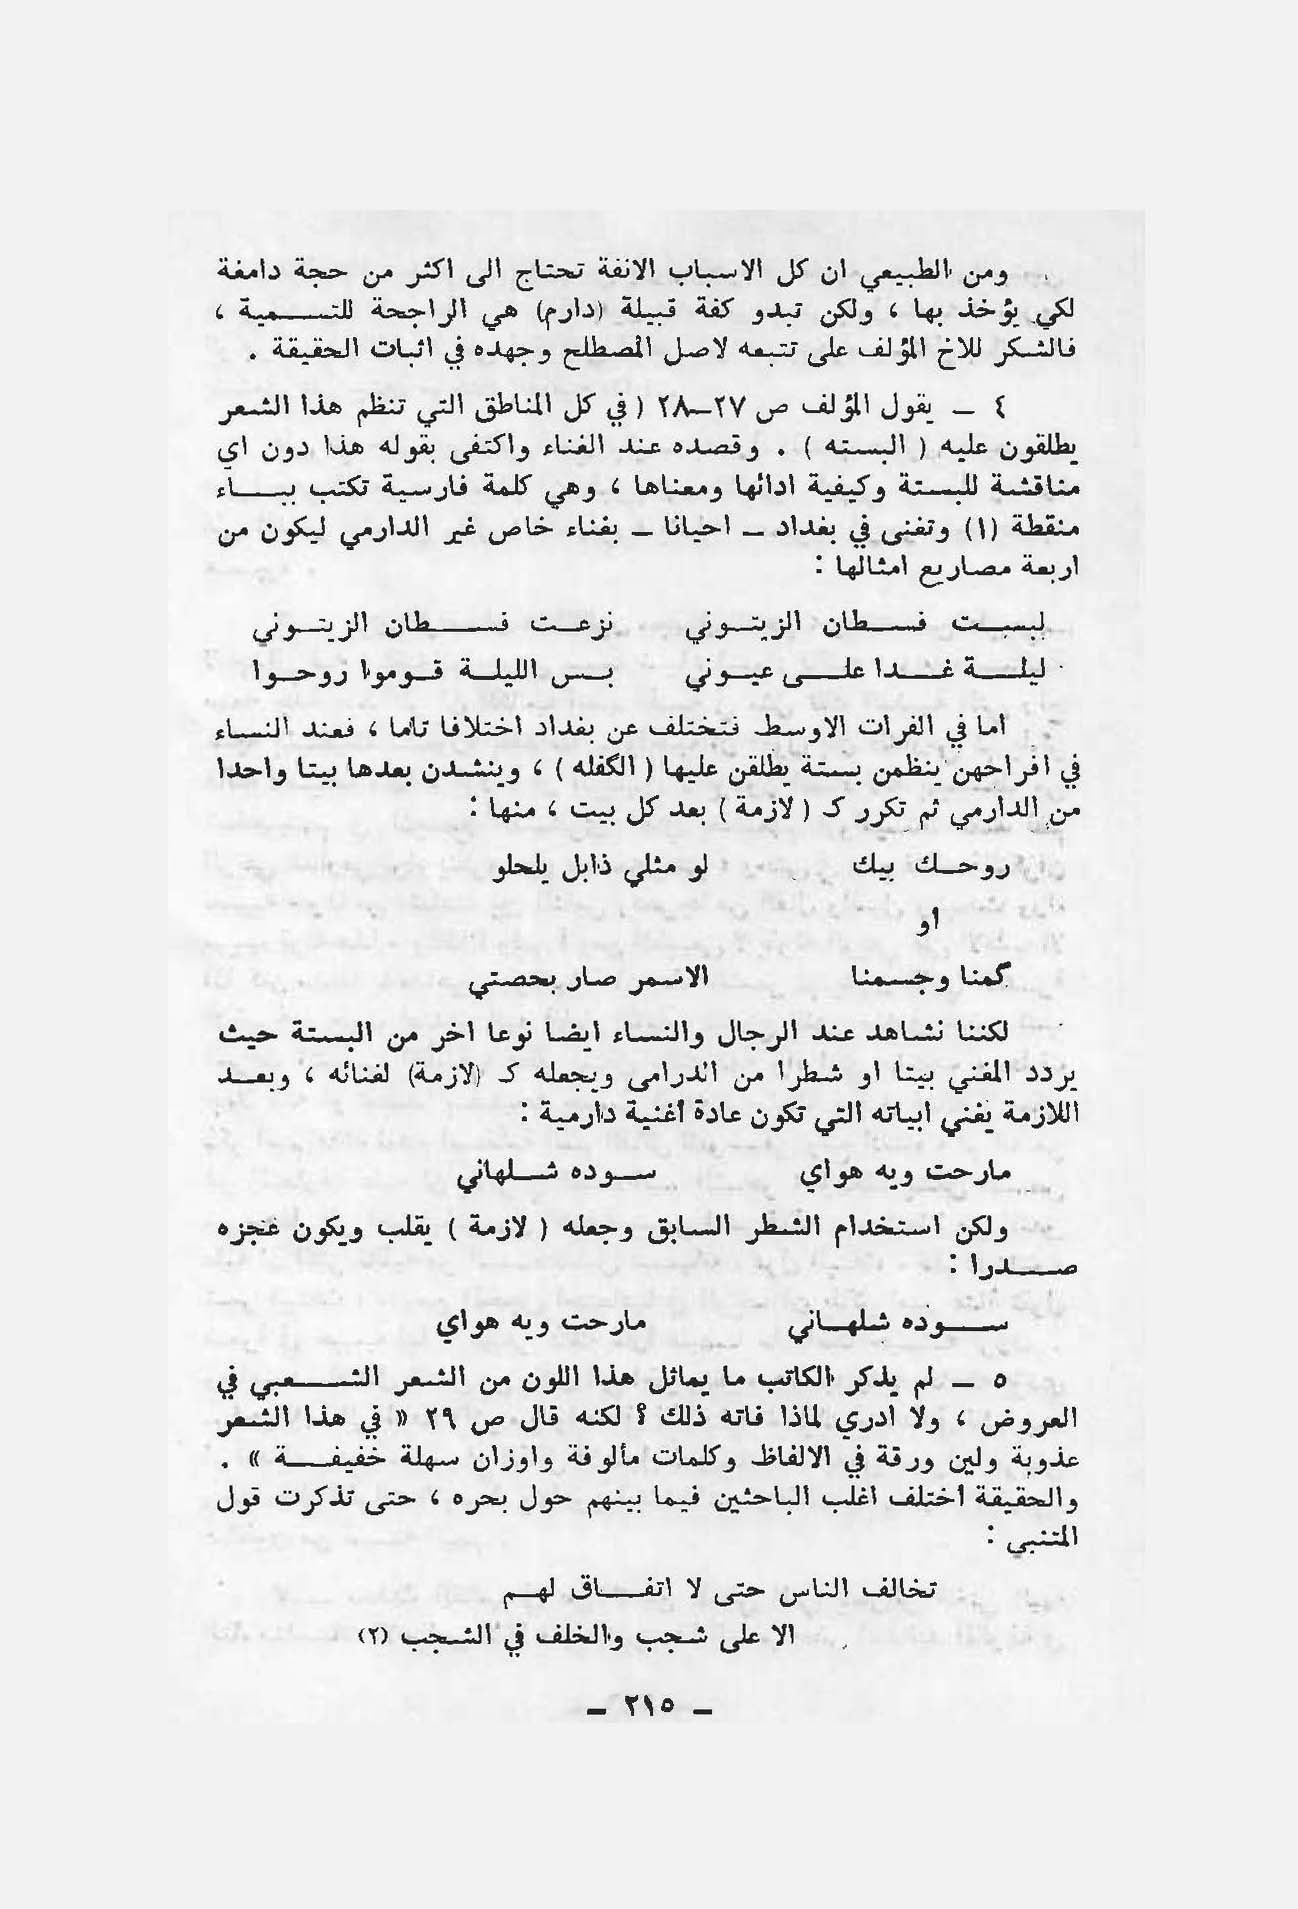 ومن الطبيعي ان كل الاسباب الانفة تحتاج الى اكثر من حجة دامغة
لكي يؤخذ بها ، ولكن تبدو كفة قبيلة (دارم) هي الراجحة للتسمية ،
فالشكر للاخ المؤلف على تتبعه لاصل المصطلح وجهده في اثبات الحقيقة .
٤ ــ يقول المؤلف ص ٢٧ــ٢٨ ( في كل المناطق التي تنظم هذا الشعر
يطلقون عليه ( البسته ) . وقصده عند الغناء واكتفى بقوله هذا دون اي
مناقشة للبستة وكيفية ادائها ومعناها ، وهي كلمة فارسية تكتب بباء
منقطة (١) وتغنى في بغداد ــ احيانا ــ بغناء خاص غير الدارمي ليكون من
اربعة مصاريع امثالها :
لبست فسطان الزيتوني نزعت فسطان الزيتوني
ليلة غدا على عيوني بس الليلة قوموا روحوا
اما في الفرات الاوسط فتختلف عن بغداد اختلافا تاما ، فعند النساء
في افراحهن ينظمن بستة يطلقن عليها ( الگفله ) ، وينشدن بعدها بيتا واحدا
من الدارمي ثم تكرر كـ ( لازمة ) بعد كل بيت ، منها :
روحك بيك لو مثلي ذابل يلحلو
او
گمنا وجسمنا الاسمر صار بحصتي
لكننا نشاهد عند الرجال والنساء ايضا نوعا اخر من البستة حيث
يردد المغني بيتا او شطرا من الدرامى ويجعله كـ (لازمة) لغنائه ، وبعد
اللازمة يغني ابياته التي تكون عادة أغنية دارمية :
مارحت ويه هواي سوده شلهاني
ولكن استخدام الشطر السابق وجعله ( لازمة ) يقلب ويكون عجزه
صدرا :
سوده شلهاني مارحت ويه هواي
٥ ــ لم يذكر الكاتب ما يماثل هذا اللون من الشعر الشعبي في
العروض ، ولا ادري لماذا فاته ذلك ؟ لكنه قال ص ٢٩ « في هذا الشعر
عذوبة ولين ورقة في الالفاظ وكلمات مألوفة واوزان سهلة خفيفة » .
والحقيقة أختلف اغلب الباحثين فيما بينهم حول بحره ، حتى تذكرت قول
المتنبي :
تخالف الناس حتى لا اتفاق لهم
الا على شجب والخلف في الشجب (٢)
ــ ٢١٥ ــ